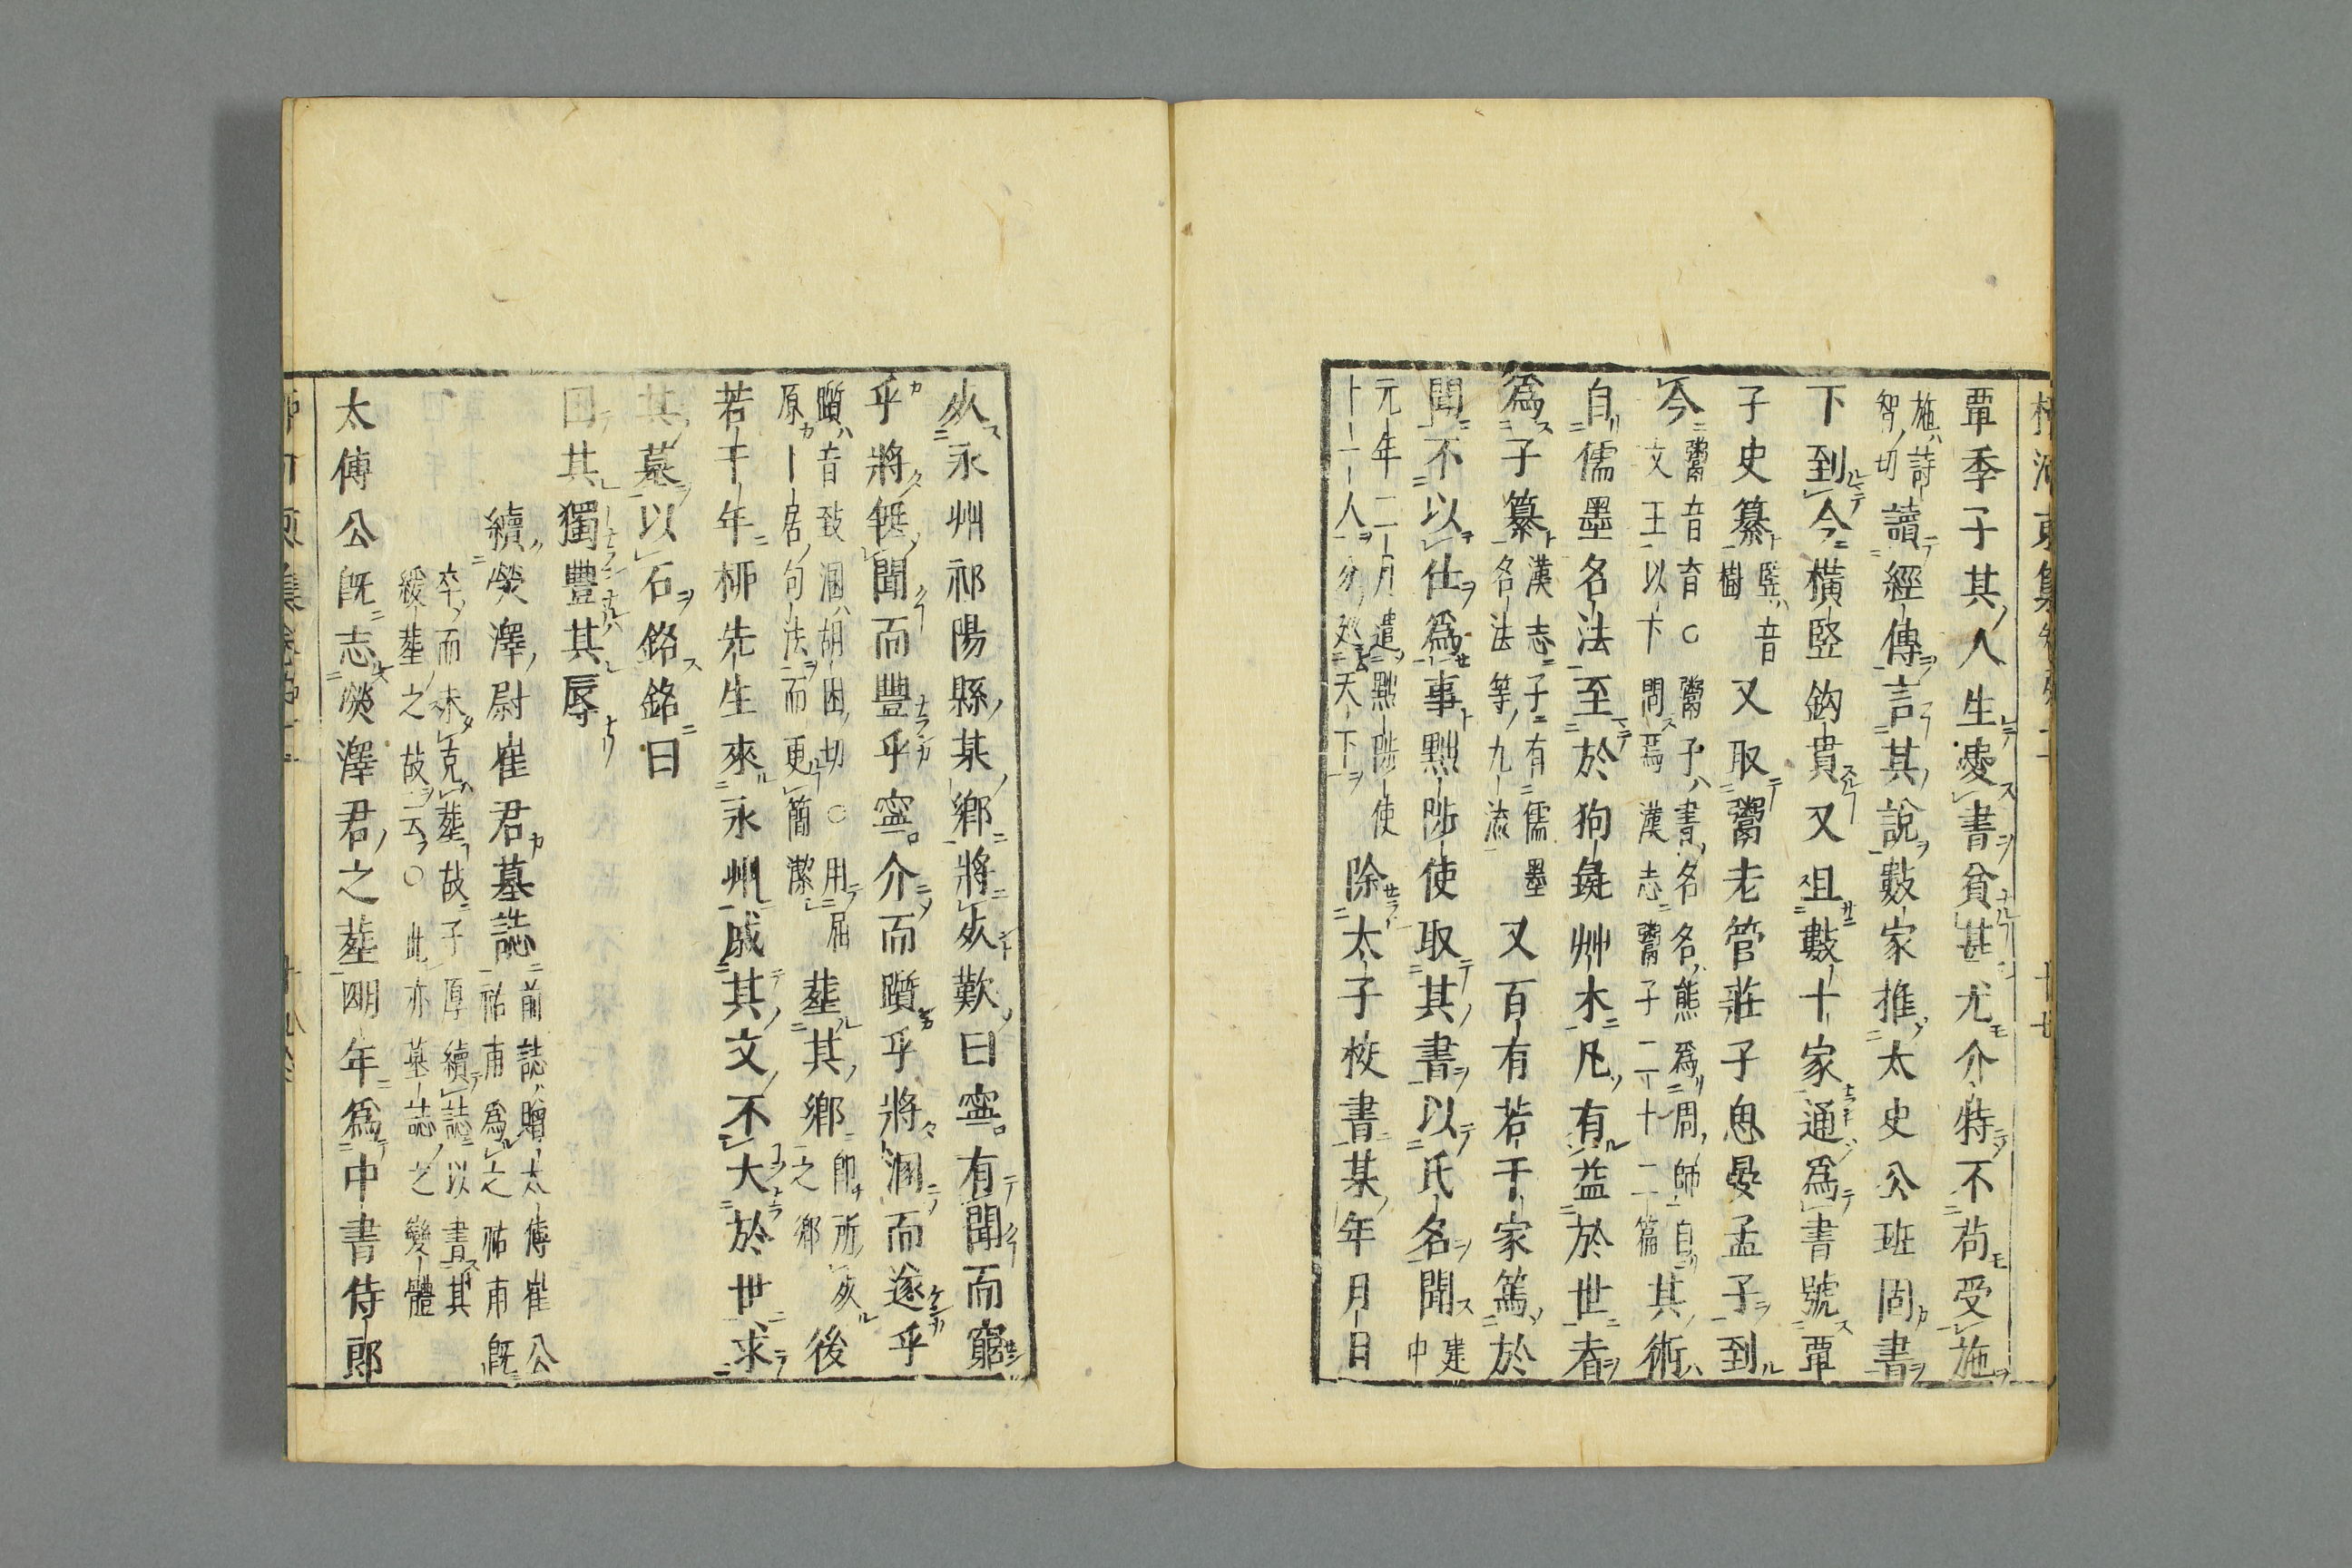 覃季子其人生愛書貧甚尤介特不苟受施
施詩
智切
讀經傳言其說數家推太史公班固書
下到今橫竪鈎貫又且數十家通爲書號覃
子史纂
竪音
樹
又取鬻老管莊子思晏孟子到
今
鬻音育○鬻子書名名熊爲周師自
文王以下問焉漢志鬻子二十二篇
其術
自儒墨名法至於狗彘艸木凡有益於世者
爲子纂
漢志子有儒墨
名法等九流
又百有若干家篤於
聞不以仕爲事黜陟使取其書以氏名聞
建
中
元年二月遣黜陟使
十一人分巡天下
除太子校書某年月日
死永州祁陽縣某鄉將死歎曰寧有聞而窮
乎將無聞而豐乎寧介而躓乎將溷而遂乎
躓音致溷胡困切○用屈
原居句法而更簡潔
葬其鄉
卽所死
之鄉
後
若干年柳先生來永州戚其文不大於世求
其墓以石銘銘曰
困其獨豐其辱
續滎澤尉崔君墓誌
前誌贈太傅崔公
祐甫爲之祐甫旣
卒而未克葬故子厚續誌以書其
緩葬之故云○此亦墓誌之變體
太傅公旣志滎澤君之葬明年爲中書侍郎